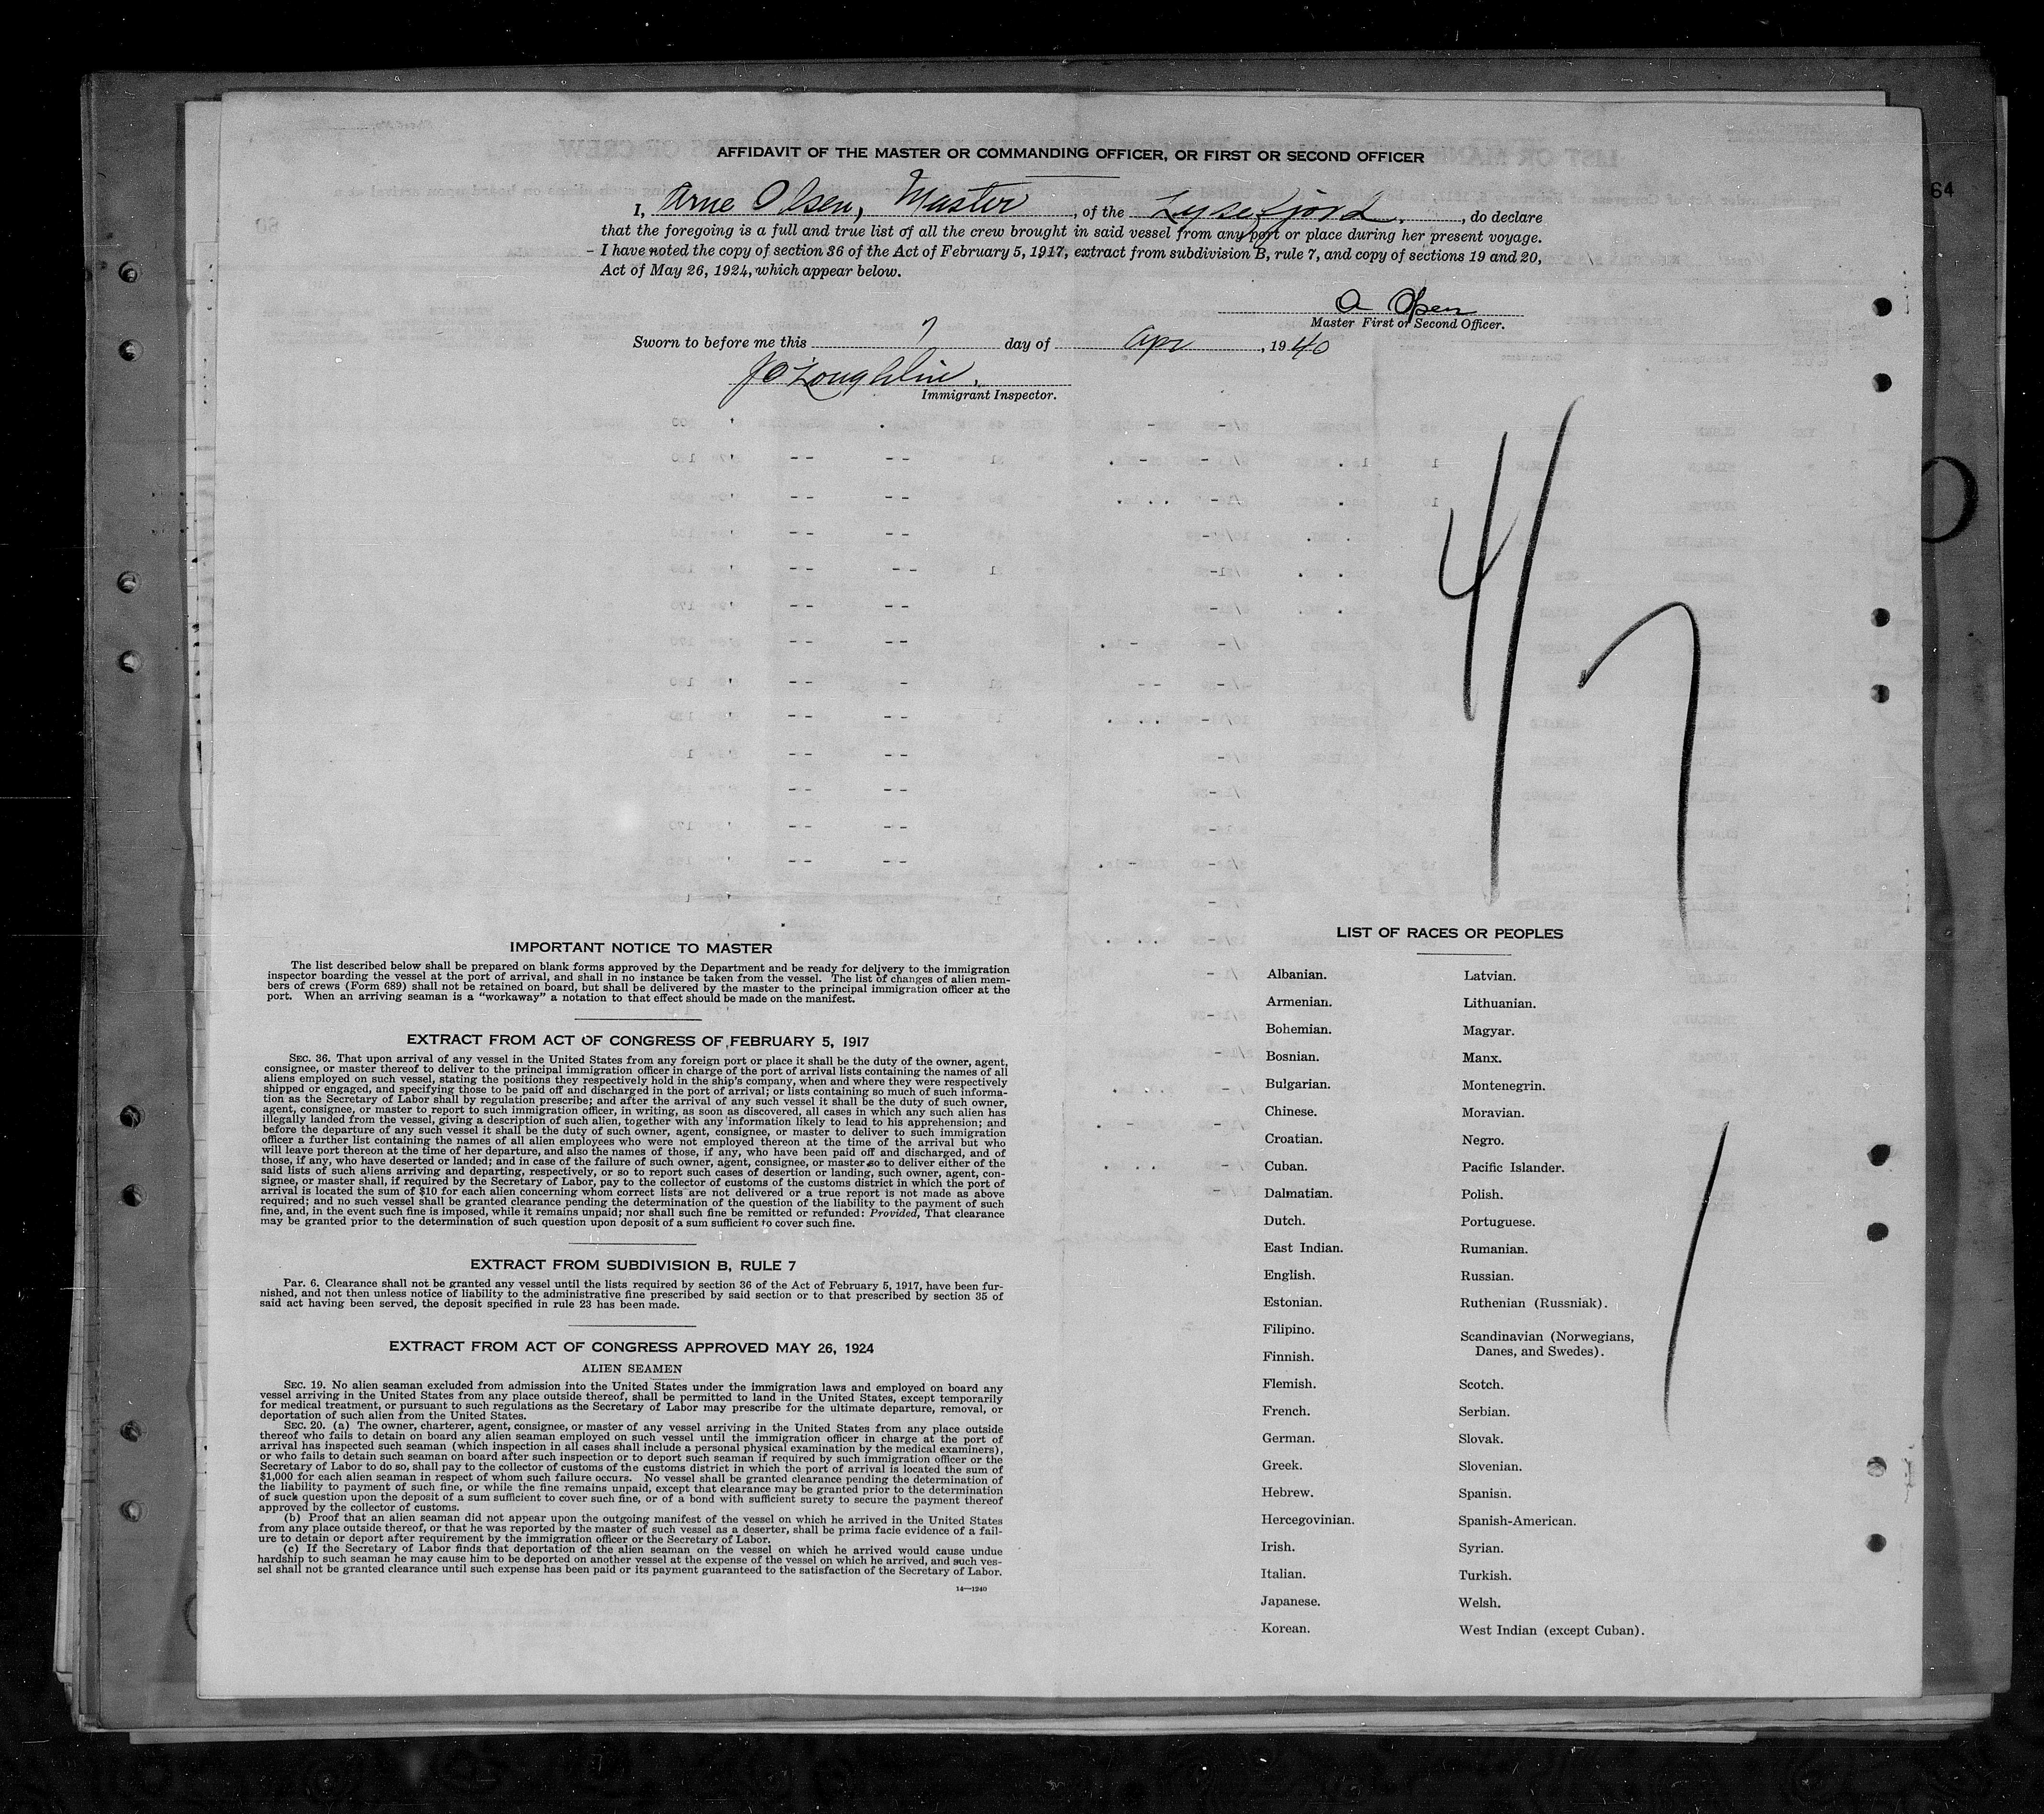 AFFIDAVIT OF THE MASTER OR COMMANDING OFFICER, OR FIRST OR SECOND OFFICER
64
I, Arne Olsen, Master, of the Lysefjord, do declare
that the foregoing is a full and true list of all the crew brought in said vessel from any port or place during her present voyage.
I have noted the copy of section 36 of the Act of February 5, 1917, extract from subdivision B, rule 7, and copy of sections 19 and 20,
Act of May 26, 1924, which appear below.
A Olsen
Master First or Second Officer.
Sworn to before me this 7 day of Apr, 1940
J O'Loughlin,
Immigrant Inspector.
4/7
IMPORTANT NOTICE TO MASTER
The list described below shall be prepared on blank forms approved by the Department and be ready for delivery to the immigration
inspector boarding the vessel at the port of arrival, and shall in no instance be taken from the vessel. The list of changes of alien mem-
bers of crews (Form 689) shall not be retained on board, but shall be delivered by the master to the principal immigration officer at the
port. When an arriving seaman is a "workaway" a notation to that effect should be made on the manifest.
EXTRACT FROM ACT OF CONGRESS OF FEBRUARY 5, 1917
SEC. 36. That upon arrival of any vessel in the United States from any foreign port or place it shall be the duty of the owner, agent,
consignee, or master thereof to deliver to the principal immigration officer in charge of the port of arrival lists containing the names of all
aliens employed on such vessel, stating the positions they respectively hold in the ship's company, when and where they were respectively
shipped or engaged, and specifying those to be paid off and discharged in the port of arrival; or lists containing so much of such informa-
tion as the Secretary of Labor shall by regulation prescribe; and after the arrival of any such vessel it shall be the duty of such owner,
agent, consignee, or master to report to such immigration officer, in writing, as soon as discovered, all cases in which any such alien has
illegally landed from the vessel, giving a description of such alien, together with any information likely to lead to his apprehension; and
before the departure of any such vessel it shall be the duty of such owner, agent, consignee, or master to deliver to such immigration
officer a further list containing the names of all alien employees who were not employed thereon at the time of the arrival but who
will leave port thereon at the time of her departure, and also the names of those, if any, who have been paid off and discharged, and of
those, if any, who have deserted or landed; and in case of the failure of such owner, agent, consignee, or master so to deliver either of the
said lists of such aliens arriving and departing, respectively, or so to report such cases of desertion or landing, such owner, agent, con-
signee, or master shall, if required by the Secretary of Labor, pay to the collector of customs of the customs district in which the port of
arrival is located the sum of $10 for each alien concerning whom correct lists are not delivered or a true report is not made as above
required; and no such vessel shall be granted clearance pending the determination of the question of the liability to the payment of such
fine, and, in the event such fine is imposed, while it remains unpaid; nor shall such fine be remitted or refunded: Provided, That clearance
may be granted prior to the determination of such question upon deposit of a sum sufficient to cover such fine.
EXTRACT FROM SUBDIVISION B, RULE 7
Par. 6. Clearance shall not be granted any vessel until the lists required by section 36 of the Act of February 5, 1917, have been fur-
nished, and not then unless notice of liability to the administrative fine prescribed by said section or to that prescribed by section 35 of
said act having been served, the deposit specified in rule 23 has been made.
EXTRACT FROM ACT OF CONGRESS APPROVED MAY 26, 1924
ALIEN SEAMEN
SEC. 19. No alien seaman excluded from admission into the United States under the immigration laws and employed on board any
vessel arriving in the United States from any place outside thereof, shall be permitted to land in the United States, except temporarily
for medical treatment, or pursuant to such regulations as the Secretary of Labor may prescribe for the ultimate departure, removal, or
deportation of such alien from the United States.
SEC. 20. (a) The owner, charterer, agent, consignee, or master of any vessel arriving in the United States from any place outside
thereof who fails to detain on board any alien seaman employed on such vessel until the immigration officer in charge at the port of
arrival has inspected such seaman (which inspection in all cases shall include a personal physical examination by the medical examiners),
or who fails to detain such seaman on board after such inspection or to deport such seaman if required by such immigration officer or the
Secretary of Labor to do so, shall pay to the collector of customs of the customs district in which the port of arrival is located the sum of
$1,000 for each alien seaman in respect of whom such failure occurs. No vessel shall be granted clearance pending the determination of
the liability to payment of such fine, or while the fine remains unpaid, except that clearance may be granted prior to the determination
of such question upon the deposit of a sum sufficient to cover such fine, or of a bond with sufficient surety to secure the payment thereof
approved by the collector of customs.
(b) Proof that an alien seaman did not appear upon the outgoing manifest of the vessel on which he arrived in the United States
from any place outside thereof, or that he was reported by the master of such vessel as a deserter, shall be prima facie evidence of a fail-
ure to detain or deport after requirement by the immigration officer or the Secretary of Labor.
(c) If the Secretary of Labor finds that deportation of the alien seaman on the vessel on which he arrived would cause undue
hardship to such seaman he may cause him to be deported on another vessel at the expense of the vessel on which he arrived, and such ves-
sel shall not be granted clearance until such expense has been paid or its payment guaranteed to the satisfaction of the Secretary of Labor.
14—1240
LIST OF RACES OR PEOPLES
Albanian.
Armenian.
Bohemian.
Bosnian.
Bulgarian.
Chinese.
Croatian.
Cuban.
Dalmatian.
Dutch.
East Indian.
English.
Estonian.
Filipino.
Finnish.
Flemish.
French.
German.
Greek.
Hebrew.
Hercegovinian.
Irish.
Italian.
Japanese.
Korean.
Latvian.
Lithuanian.
Magyar.
Manx.
Montenegrin.
Moravian.
Negro.
Pacific Islander.
Polish.
Portuguese.
Rumanian.
Russian.
Ruthenian (Russniak).
Scandinavian (Norwegians,
Danes, and Swedes).
Scotch.
Serbian.
Slovak.
Slovenian.
Spanish.
Spanish-American.
Syrian.
Turkish.
Welsh.
West Indian (except Cuban).